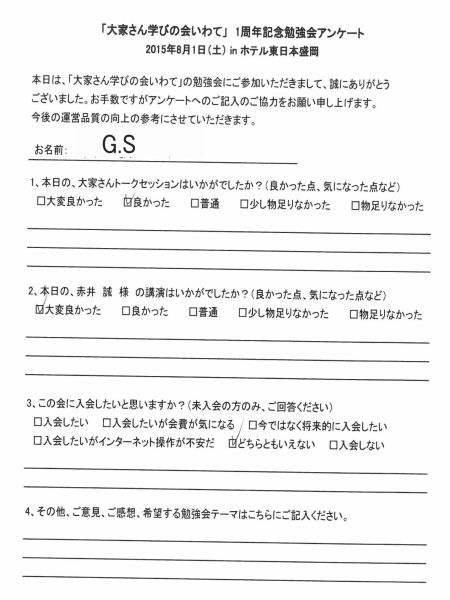 「大家さん学びの会いわて」 1周年記念勉強会アンケート
2015年8月1日(土) in ホテル東日本盛岡
本日は、「大家さん学びの会いわて」の勉強会にご参加いただきまして、誠にありがとう
ございました。お手数ですがアンケートへのご記入のご協力をお願い申し上げます。
今後の運営品質の向上の参考にさせていただきます。
お名前: G.S
1、本日の、大家さんトークセッションはいかがでしたか?(良かった点、気になった点など)
□大変良かった ☑良かった □普通 □少し物足りなかった □物足りなかった
2、本日の、赤井 誠 様 の講演はいかがでしたか?(良かった点、気になった点など)
☑大変良かった □良かった □普通 □少し物足りなかった □物足りなかった
3、この会に入会したいと思いますか?(未入会の方のみ、ご回答ください)
□入会したい □入会したいが会費が気になる □今ではなく将来的に入会したい
□入会したいがインターネット操作が不安だ ☑どちらともいえない □入会しない
4、その他、ご意見、ご感想、希望する勉強会テーマはこちらにご記入ください。